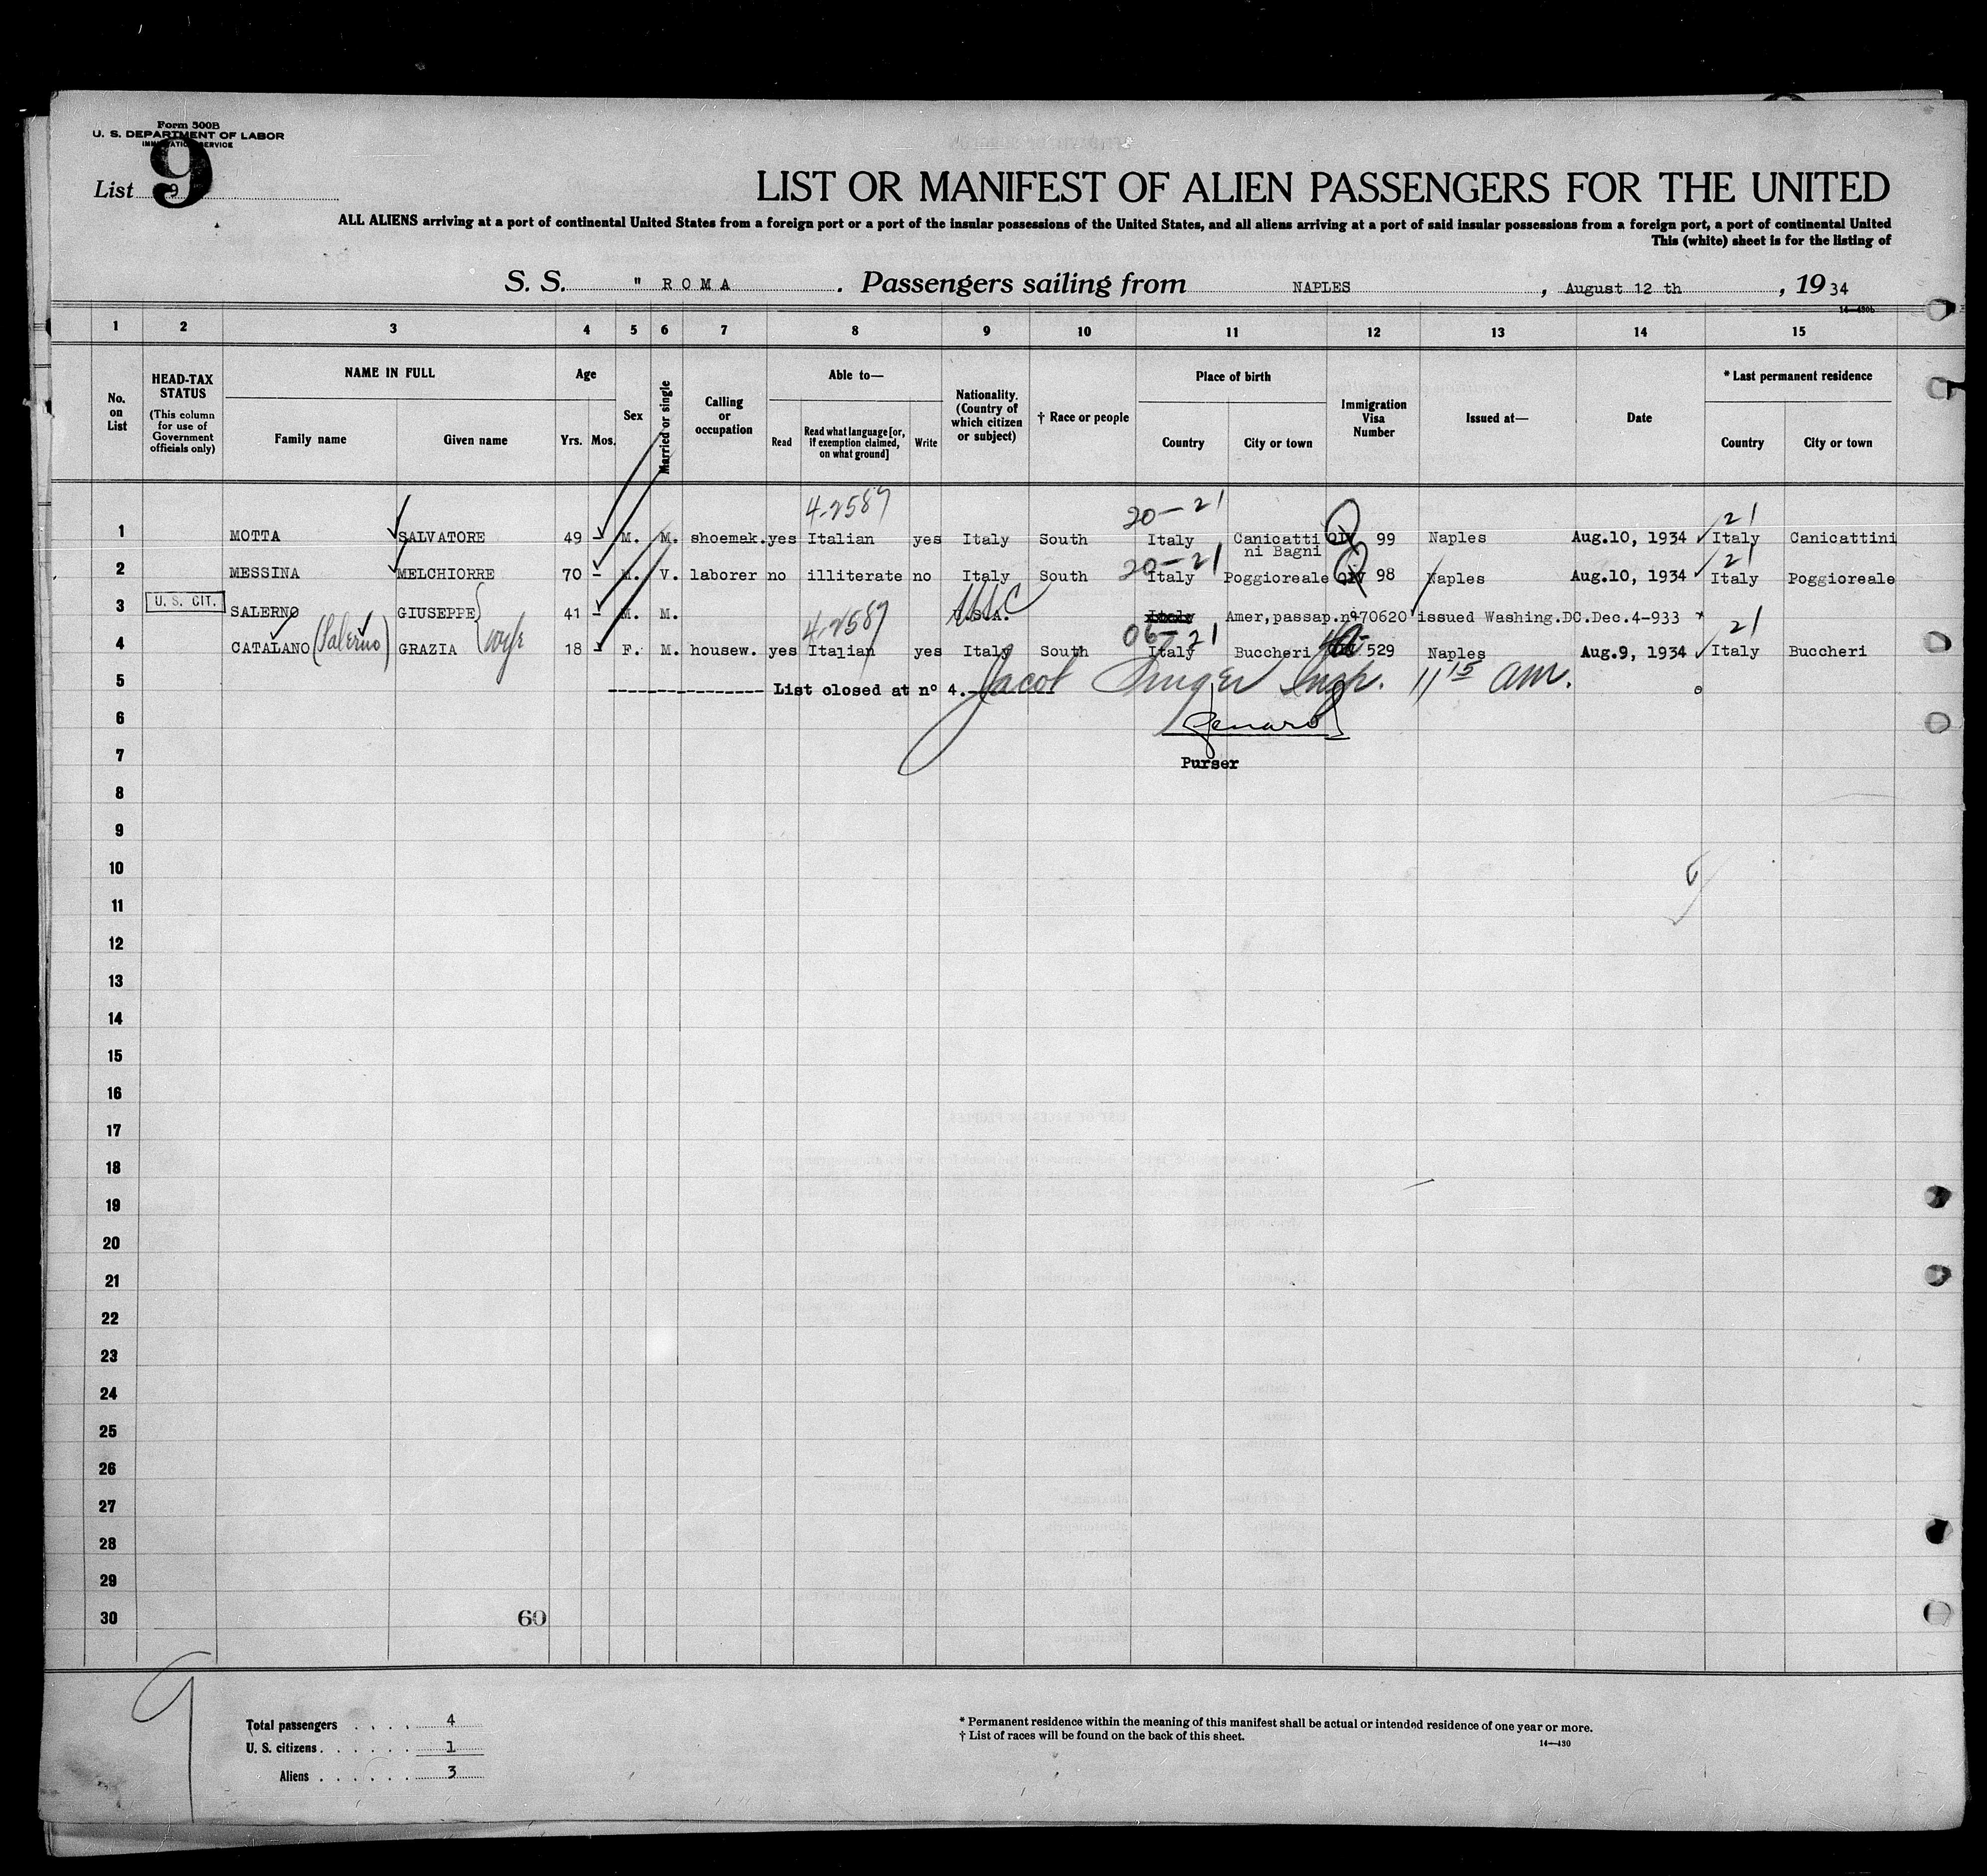 Form 500B
U. S. DEPARTMENT OF LABOR
IMMIGRATION SERVICE
List 9
9
LIST OR MANIFEST OF ALIEN PASSENGERS FOR THE UNITED
ALL ALIENS arriving at a port of continental United States from a foreign port or a port of the insular possessions of the United States, and all aliens arriving at a port of said insular possessions from a foreign port, a port of continental United
This (white) sheet is for the listing of
S. S. " R O M A . Passengers sailing from NAPLES , August 12 th , 19 34
14—430b
1 2 3 4 5 6 7 8 9 10 11 12 13 14 15
No. on List
HEAD-TAX STATUS (This column for use of Government officials only)
NAME IN FULL
Family name Given name
Age
Yrs. Mos.
Sex
Married or single
Calling or occupation
Able to—
Read Read what language [or, if exemption claimed, on what ground] Write
Nationality. (Country of which citizen or subject)
† Race or people
Place of birth
Country City or town
Immigration Visa Number
Issued at—
Date
* Last permanent residence
Country City or town
4-2587 20-21 21
1 MOTTA SALVATORE 49 - M. M. shoemak. yes Italian yes Italy South Italy Canicatti QIV 99 Naples Aug.10, 1934 Italy Canicattini
ni Bagni
20-21 21
2 MESSINA MELCHIORRE 70 - M. V. laborer no illiterate no Italy South Italy Poggioreale QIV 98 Naples Aug.10, 1934 Italy Poggioreale
3 U. S. CIT. SALERNO GIUSEPPE 41 - M. M. U.S.A. USC Italy Amer,passap.n°70620 issued Washing.DC.Dec.4-933 *
4-2587 06-21 21
4 CATALANO (Salerno) GRAZIA wife 18 - F. M. housew. yes Italian yes Italy South Italy Buccheri 529 Naples Aug.9, 1934 Italy Buccheri
5 ---------------- List closed at n° 4.------ Jacob Singer Insp. 11 15 am.
6
7 Purser
8
9
10
11
12
13
14
15
16
17
18
19
20
21
22
23
24
25
26
27
28
29
30 60
9
Total passengers . . . . 4
U. S. citizens . . . . . . 1
Aliens . . . . . . 3
* Permanent residence within the meaning of this manifest shall be actual or intended residence of one year or more.
† List of races will be found on the back of this sheet.
14—430